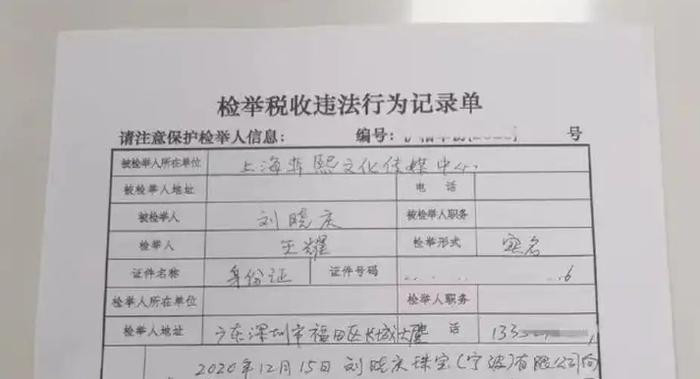 检举税收违法行为记录单
请注意保护检举人信息： 编号： 号
被检举人所在单位 上海韩熙文化传媒中心
被检举人地址 电 话
被检举人 刘晓庆 被检举人职务
检举人 王耀 检举形式 实名
证件名称 身份证 证件号码 6
检举人所在单位 检举人职务
检举人地址 广东深圳市福田区长城大厦 话 133
2020年12月15日刘晓庆珠宝(宁波)有限公司向